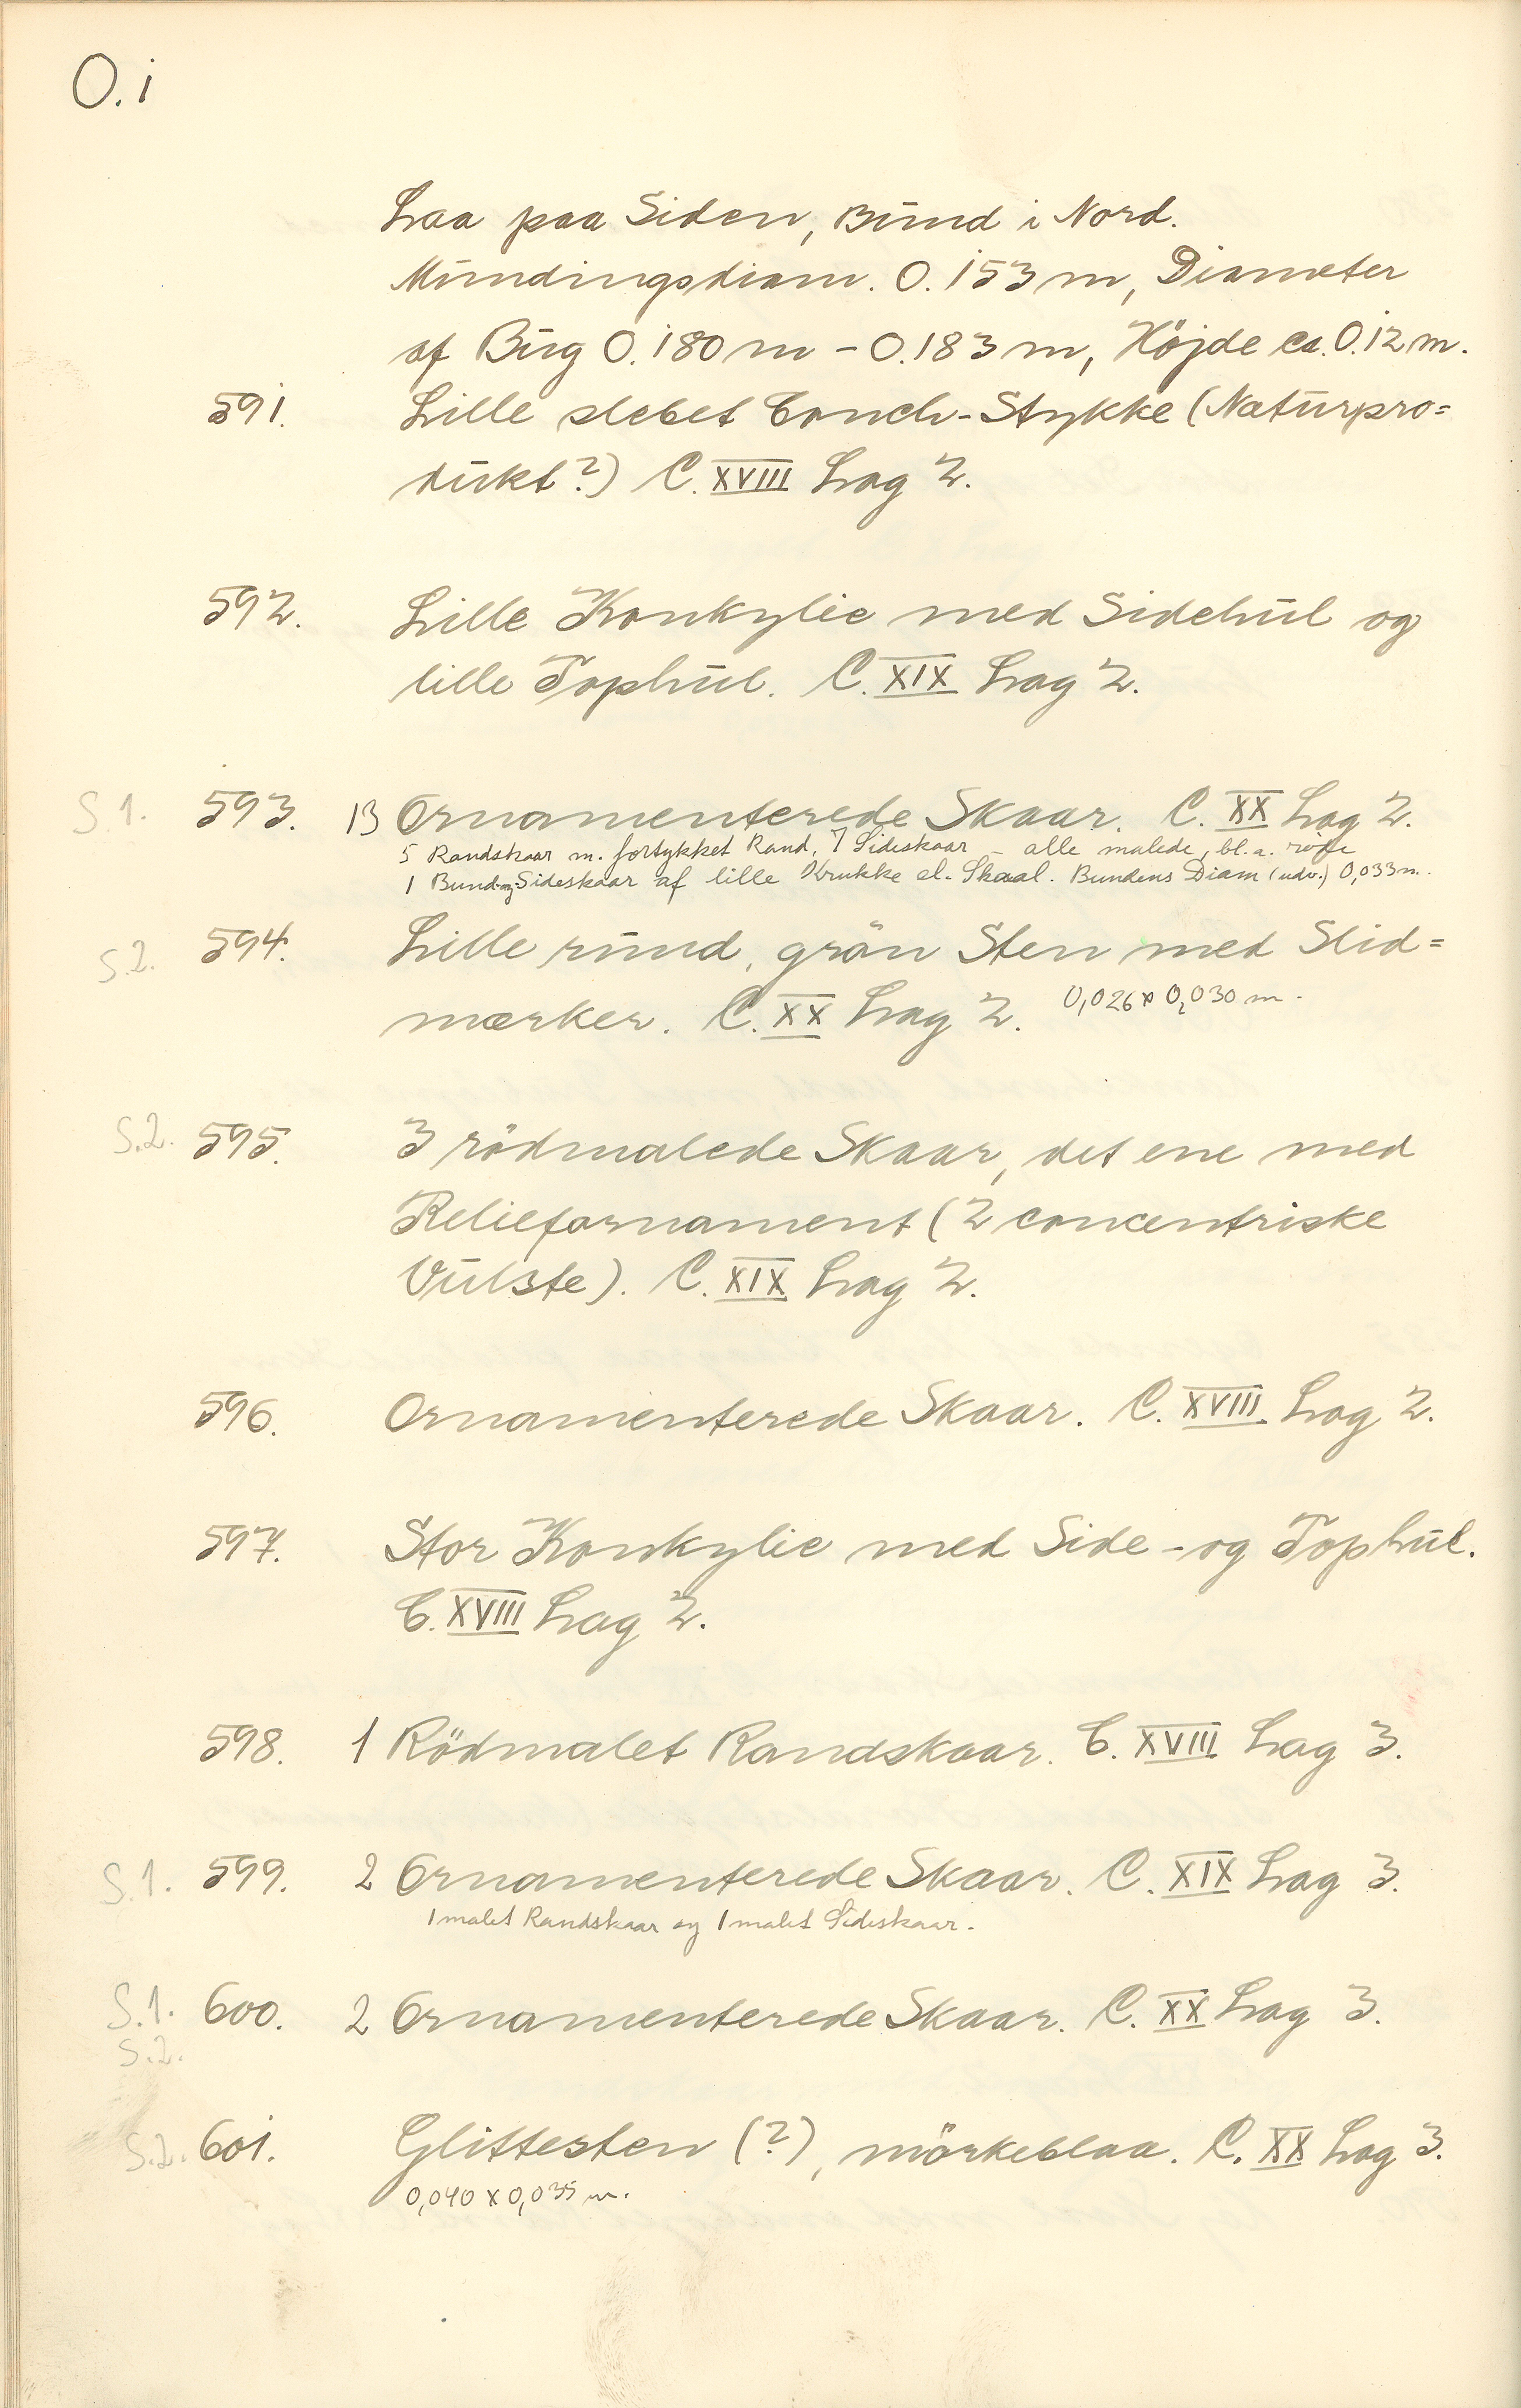 O.i
Laa paa Siden, Bund i Nord.
Mundingsdiam. 0.153 m, Diameter
af Bug 0.180 m - 0.183 m, Höjde ca. 0.12 m.
591. Lille slebet Conch-Stykke (Naturpro=
dukt?) C. XVIII Lag 2.
592. Lille Konkylie med Sidehul og
lille Tophul. C. XIX Lag 2.
S.1. 593. 13 Ornamenterede Skaar. C. XX Lag 2.
5 Randskaar m. fortykket Rand, 7 Sideskaar - alle malede, bl.a. røde
1 Bund-og Sideskaar af lille Krukke el. Skaal. Bundens Diam (udv.) 0,033 m.
S.2. 594. Lille rund, grön Sten med Slid=
mærker. C. XX Lag 2. 0,026 x 0,030 m.
S.2. 595. 3 rödmalede Skaar, det ene med
Reliefornament (2 concentriske
Vulste). C. XIX Lag 2.
596. Ornamenterede Skaar. C. XVIII Lag 2.
597. Stor Konkylie med Side- og Tophul.
C. XVIII Lag 2.
598. 1 Rödmalet Randskaar. C. XVIII Lag 3.
S.1. 599. 2 Ornamenterede Skaar. C. XIX Lag 3.
1 malet Randskaar og 1 malet Sideskaar.
S.1. 600. 2 Ornamenterede Skaar. C. XX Lag 3.
S.2.
S.2. 601. Glittesten (?), mörkeblaa. C. XX Lag 3.
0,040 x 0,035 m.